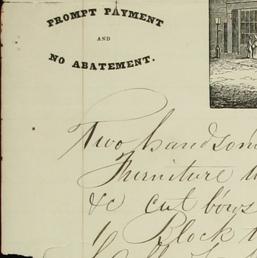 PROMPT PAYMENT
AND
NO ABATEMENT.
Two handsom
Furniture
&c cut bows
Block